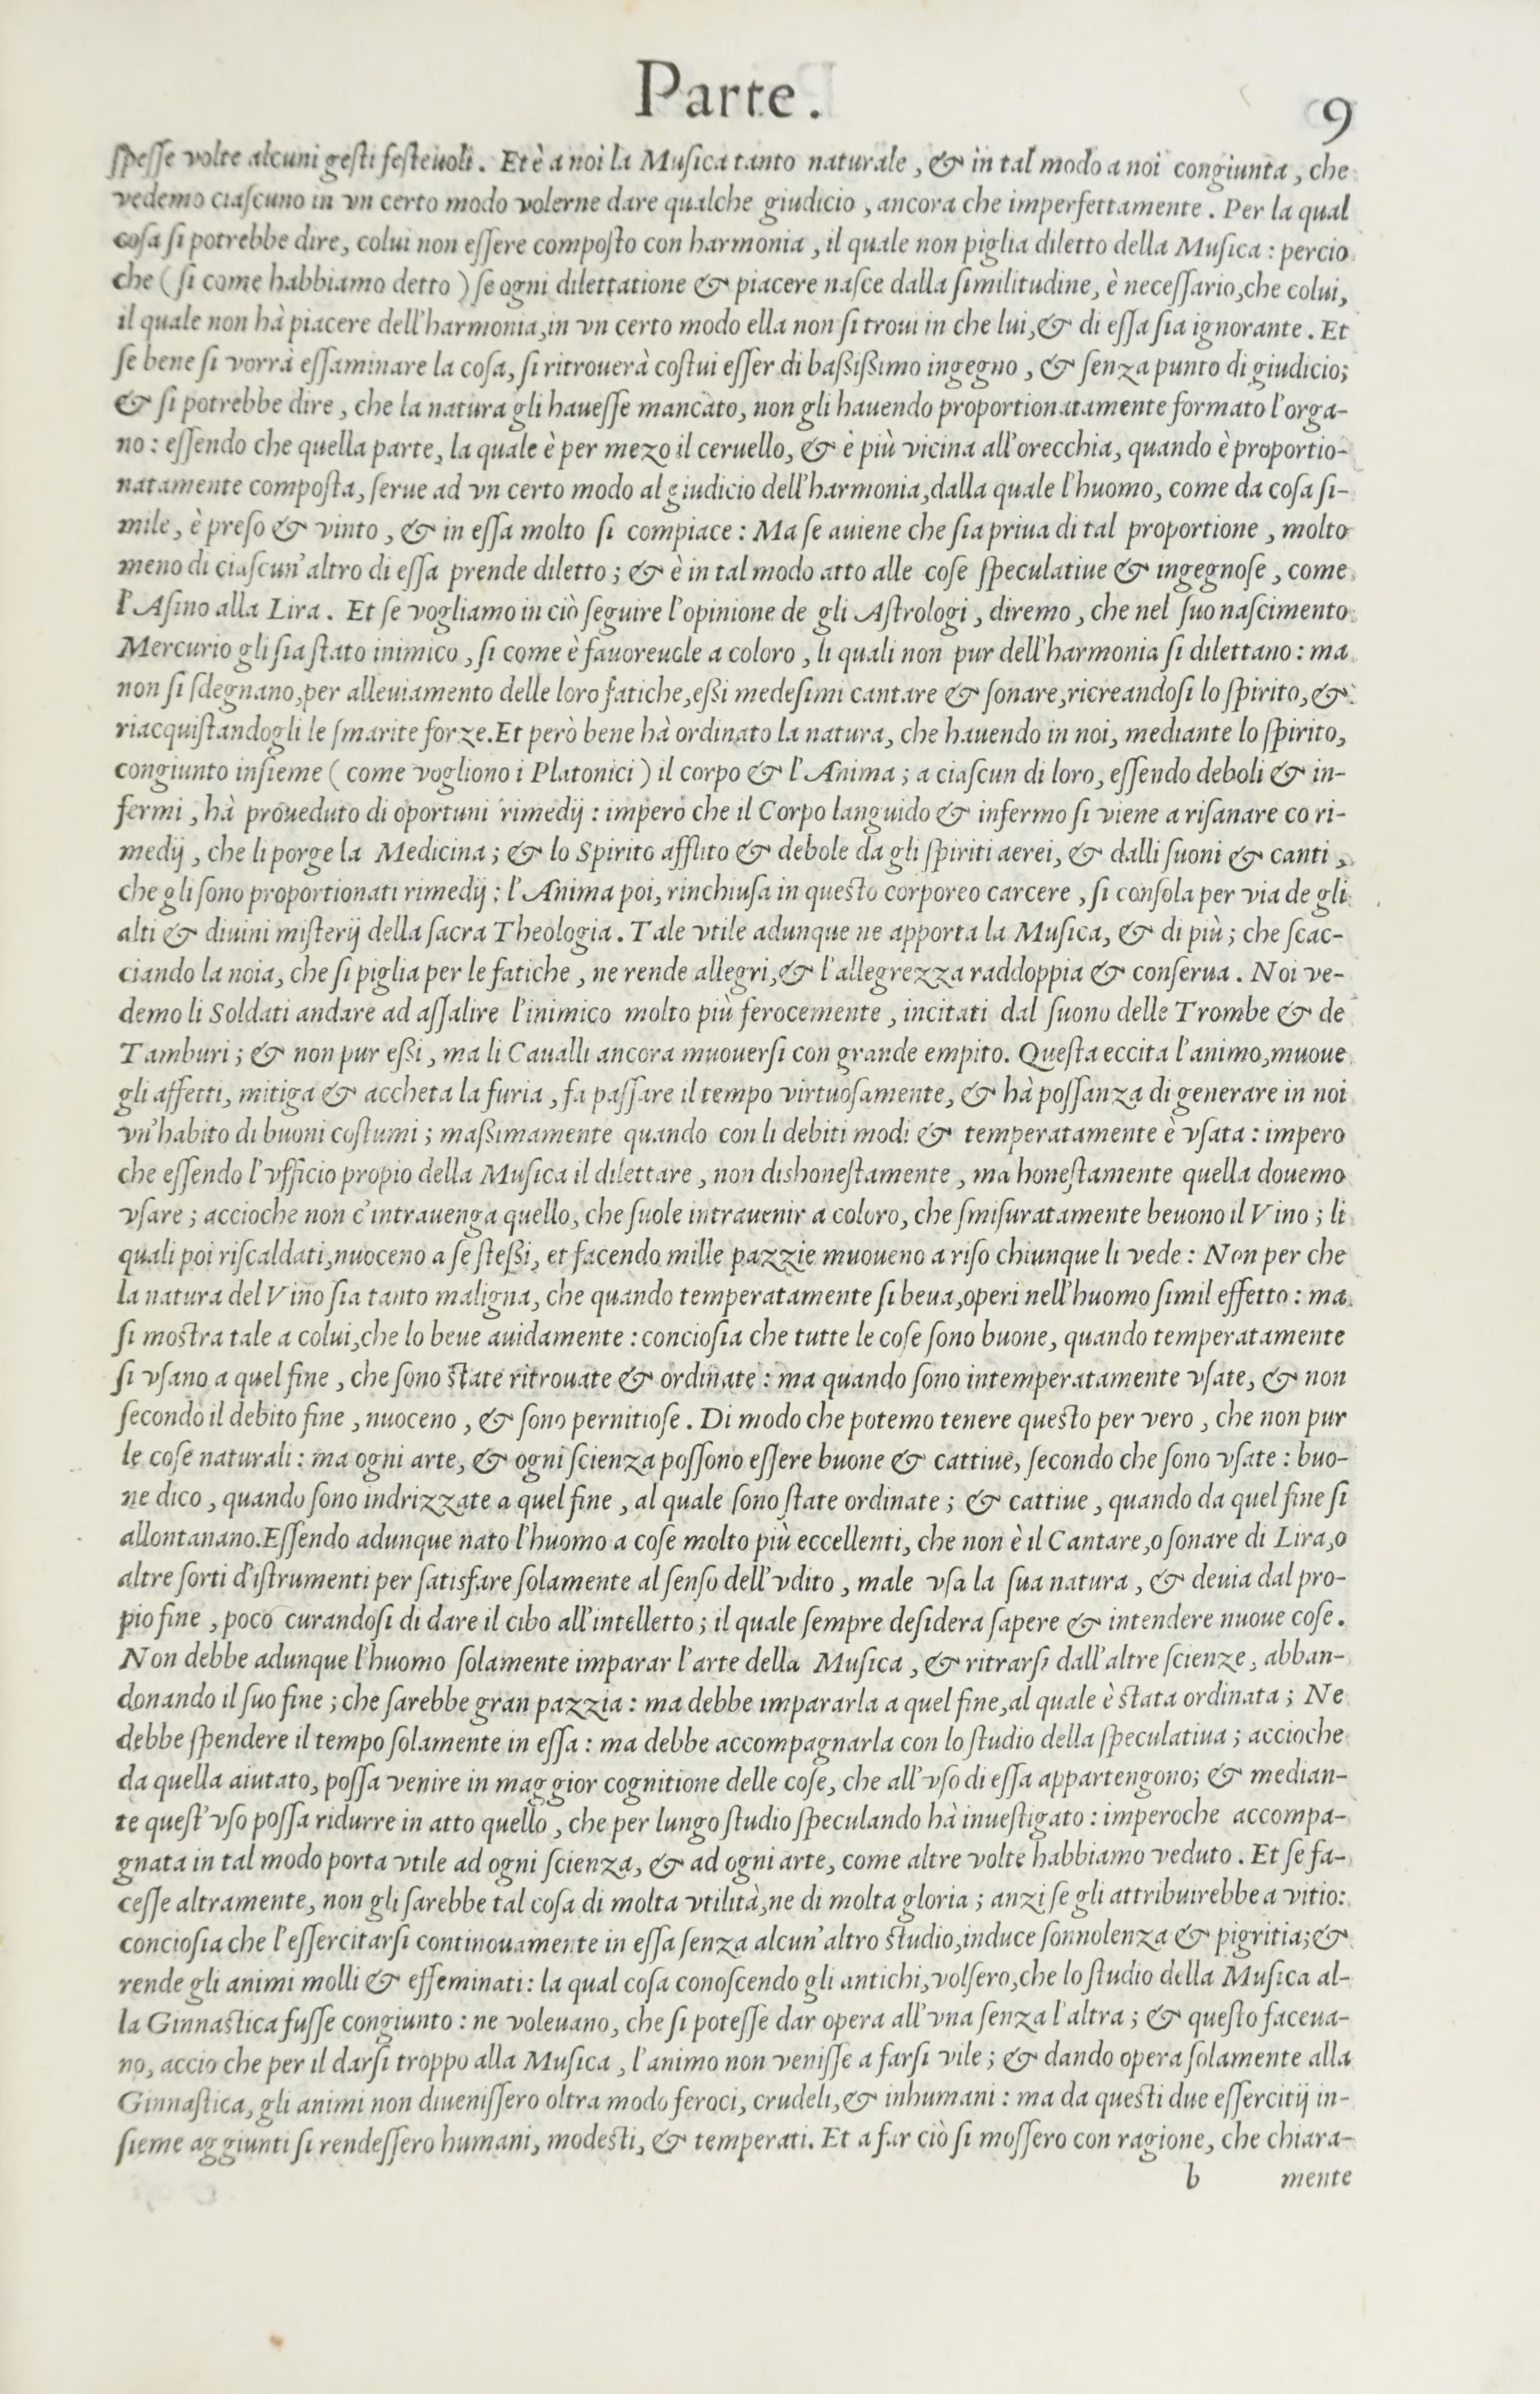 Parte.
9
ſpeſſe volte alcuni geſti feſteuoli. Et è a noi la Muſica tanto naturale, & in tal modo a noi congiunta, che
vedemo ciaſcuno in vn certo modo volerne dare qualche giudicio, ancora che imperfettamente. Per la qual
coſa ſi potrebbe dire, colui non eſſere compoſto con harmonia, il quale non piglia diletto della Muſica: percio
che (ſi come habbiamo detto) ſe ogni dilettatione & piacere naſce dalla ſimilitudine, è neceſſario, che colui,
il quale non hà piacere dell'harmonia, in vn certo modo ella non ſi troui in che lui, & di eſſa ſia ignorante. Et
ſe bene ſi vorrà eſſaminare la coſa, ſi ritrouerà coſtui eſſer di baſſiſſimo ingegno, & ſenza punto di giudicio;
& ſi potrebbe dire, che la natura gli haueſſe mancato, non gli hauendo proportionatamente formato l'orga-
no: eſſendo che quella parte, la quale è per mezo il ceruello, & è più vicina all'orecchia, quando è proportio-
natamente compoſta, ſerue ad vn certo modo al giudicio dell'harmonia, dalla quale l'huomo, come da coſa ſi-
mile, è preſo & vinto, & in eſſa molto ſi compiace: Ma ſe auiene che ſia priua di tal proportione, molto
meno di ciaſcun'altro di eſſa prende diletto; & è in tal modo atto alle coſe ſpeculatiue & ingegnoſe, come
l'Aſino alla Lira. Et ſe vogliamo in ciò ſeguire l'opinione de gli Aſtrologi, diremo, che nel ſuo naſcimento
Mercurio gli ſia ſtato inimico, ſi come è fauoreuole a coloro, li quali non pur dell'harmonia ſi dilettano: ma
non ſi ſdegnano, per alleuiamento delle loro fatiche, eſſi medeſimi cantare & ſonare, ricreandoſi lo ſpirito, &
riacquiſtandogli le ſmarite forze. Et però bene hà ordinato la natura, che hauendo in noi, mediante lo ſpirito,
congiunto inſieme (come vogliono i Platonici) il corpo & l'Anima; a ciaſcun di loro, eſſendo deboli & in-
fermi, hà proueduto di oportuni rimedij: imperò che il Corpo languido & infermo ſi viene a riſanare co ri-
medij, che li porge la Medicina; & lo Spirito afflito & debole da gli ſpiriti aerei, & dalli ſuoni & canti,
che gli ſono proportionati rimedij: l'Anima poi, rinchiuſa in queſto corporeo carcere, ſi conſola per via de gli
alti & diuini miſterij della ſacra Theologia. Tale vtile adunque ne apporta la Muſica, & di più; che ſcac-
ciando la noia, che ſi piglia per le fatiche, ne rende allegri, & l'allegrezza raddoppia & conſerua. Noi ve-
demo li Soldati andare ad aſſalire l'inimico molto più ferocemente, incitati dal ſuono delle Trombe & de
Tamburi; & non pur eſſi, ma li Caualli ancora muouerſi con grande empito. Queſta eccita l'animo, muoue
gli affetti, mitiga & accheta la furia, fa paſſare il tempo virtuoſamente, & hà poſſanza di generare in noi
vn'habito di buoni coſtumi; maſſimamente quando con li debiti modi & temperatamente è vſata: impero
che eſſendo l'vfficio propio della Muſica il dilettare, non dishoneſtamente, ma honeſtamente quella douemo
vſare; accioche non c'intrauenga quello, che ſuole intrauenir a coloro, che ſmiſuratamente beuono il Vino; li
quali poi riſcaldati, nuoceno a ſe ſteſſi, et facendo mille pazzie muoueno a riſo chiunque li vede: Non per che
la natura del Vino ſia tanto maligna, che quando temperatamente ſi beua, operi nell'huomo ſimil effetto: ma
ſi moſtra tale a colui, che lo beue auidamente: concioſia che tutte le coſe ſono buone, quando temperatamente
ſi vſano a quel fine, che ſono ſtate ritrouate & ordinate: ma quando ſono intemperatamente vſate, & non
ſecondo il debito fine, nuoceno, & ſono pernitioſe. Di modo che potemo tenere queſto per vero, che non pur
le coſe naturali: ma ogni arte, & ogni ſcienza poſſono eſſere buone & cattiue, ſecondo che ſono vſate: buo-
ne dico, quando ſono indrizzate a quel fine, al quale ſono ſtate ordinate; & cattiue, quando da quel fine ſi
allontanano. Eſſendo adunque nato l'huomo a coſe molto più eccellenti, che non è il Cantare, o ſonare di Lira, o
altre ſorti d'iſtrumenti per ſatisfare ſolamente al ſenſo dell'vdito, male vſa la ſua natura, & deuia dal pro-
pio fine, poco curandoſi di dare il cibo all'intelletto; il quale ſempre deſidera ſapere & intendere nuoue coſe.
Non debbe adunque l'huomo ſolamente imparar l'arte della Muſica, & ritrarſi dall'altre ſcienze, abban-
donando il ſuo fine; che ſarebbe gran pazzia: ma debbe impararla a quel fine, al quale è ſtata ordinata; Ne
debbe ſpendere il tempo ſolamente in eſſa: ma debbe accompagnarla con lo ſtudio della ſpeculatiua; accioche
da quella aiutato, poſſa venire in maggior cognitione delle coſe, che all'vſo di eſſa appartengono; & median-
te queſt'vſo poſſa ridurre in atto quello, che per lungo ſtudio ſpeculando hà inueſtigato: imperoche accompa-
gnata in tal modo porta vtile ad ogni ſcienza, & ad ogni arte, come altre volte habbiamo veduto. Et ſe fa-
ceſſe altramente, non gli ſarebbe tal coſa di molta vtilità, ne di molta gloria; anzi ſe gli attribuirebbe a vitio:
concioſia che l'eſſercitarſi continouamente in eſſa ſenza alcun'altro ſtudio, induce ſonnolenza & pigritia; &
rende gli animi molli & effeminati: la qual coſa conoſcendo gli antichi, volſero, che lo ſtudio della Muſica al-
la Ginnaſtica fuſſe congiunto: ne voleuano, che ſi poteſſe dar opera all'vna ſenza l'altra; & queſto faceua-
no, accio che per il darſi troppo alla Muſica, l'animo non veniſſe a farſi vile; & dando opera ſolamente alla
Ginnaſtica, gli animi non diueniſſero oltra modo feroci, crudeli, & inhumani: ma da queſti due eſſercitij in-
ſieme aggiunti ſi rendeſſero humani, modeſti, & temperati. Et a far ciò ſi moſſero con ragione, che chiara-
b mente